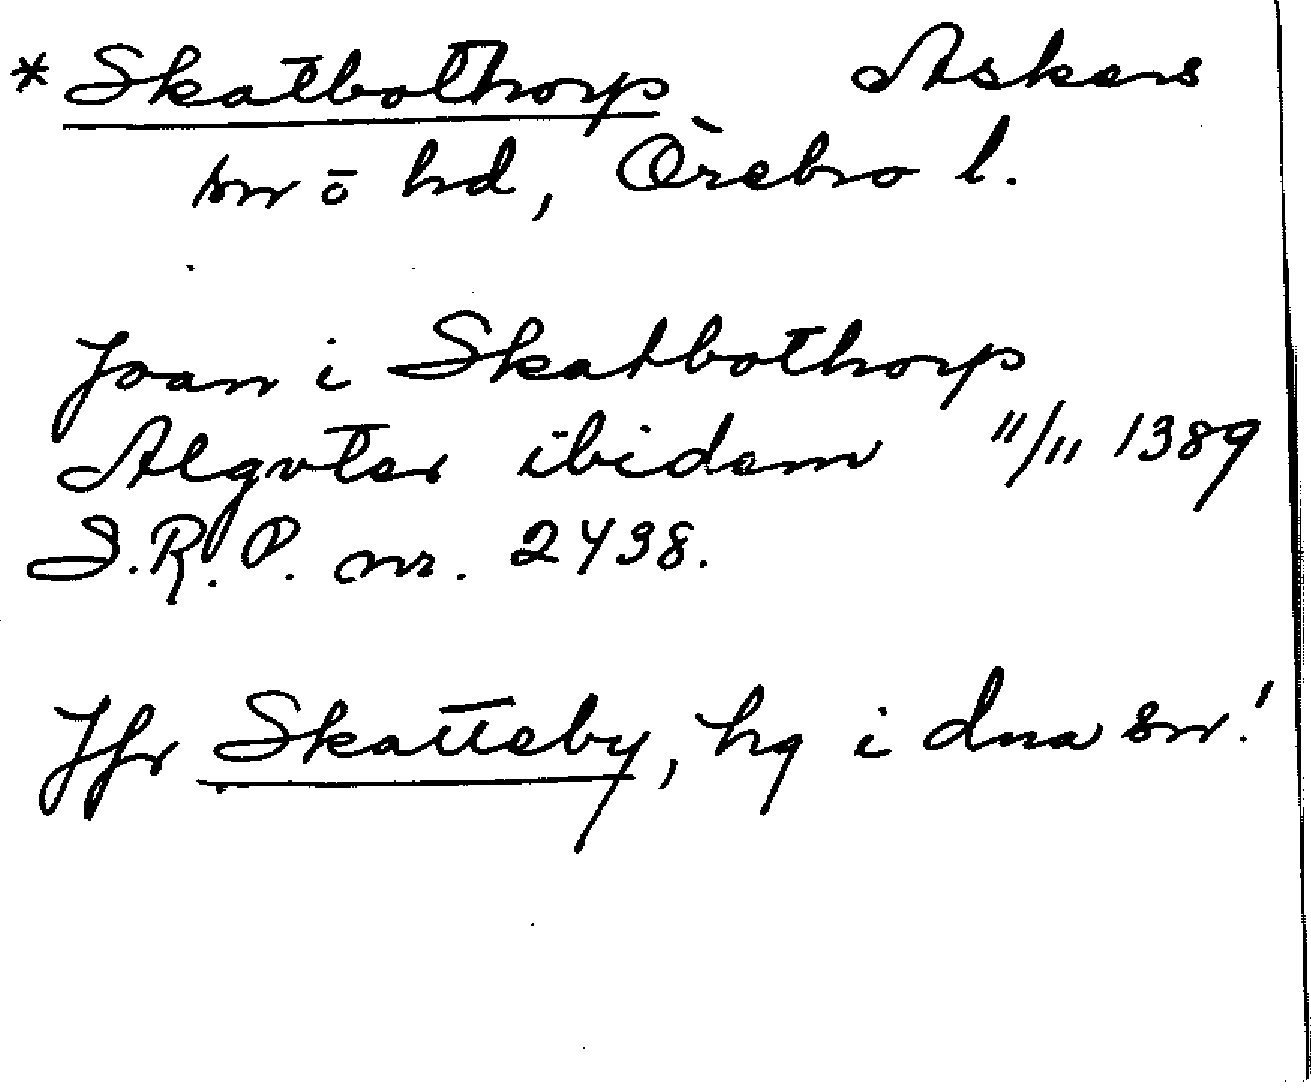 * Skatbothorp Askers
sn o hd, Örebro l.
Joan i Skatbothorp
Algvter ibidem 11/11 1389
S.R.P. nr. 2438.
Jfr Skatteby, hg i dna sn!